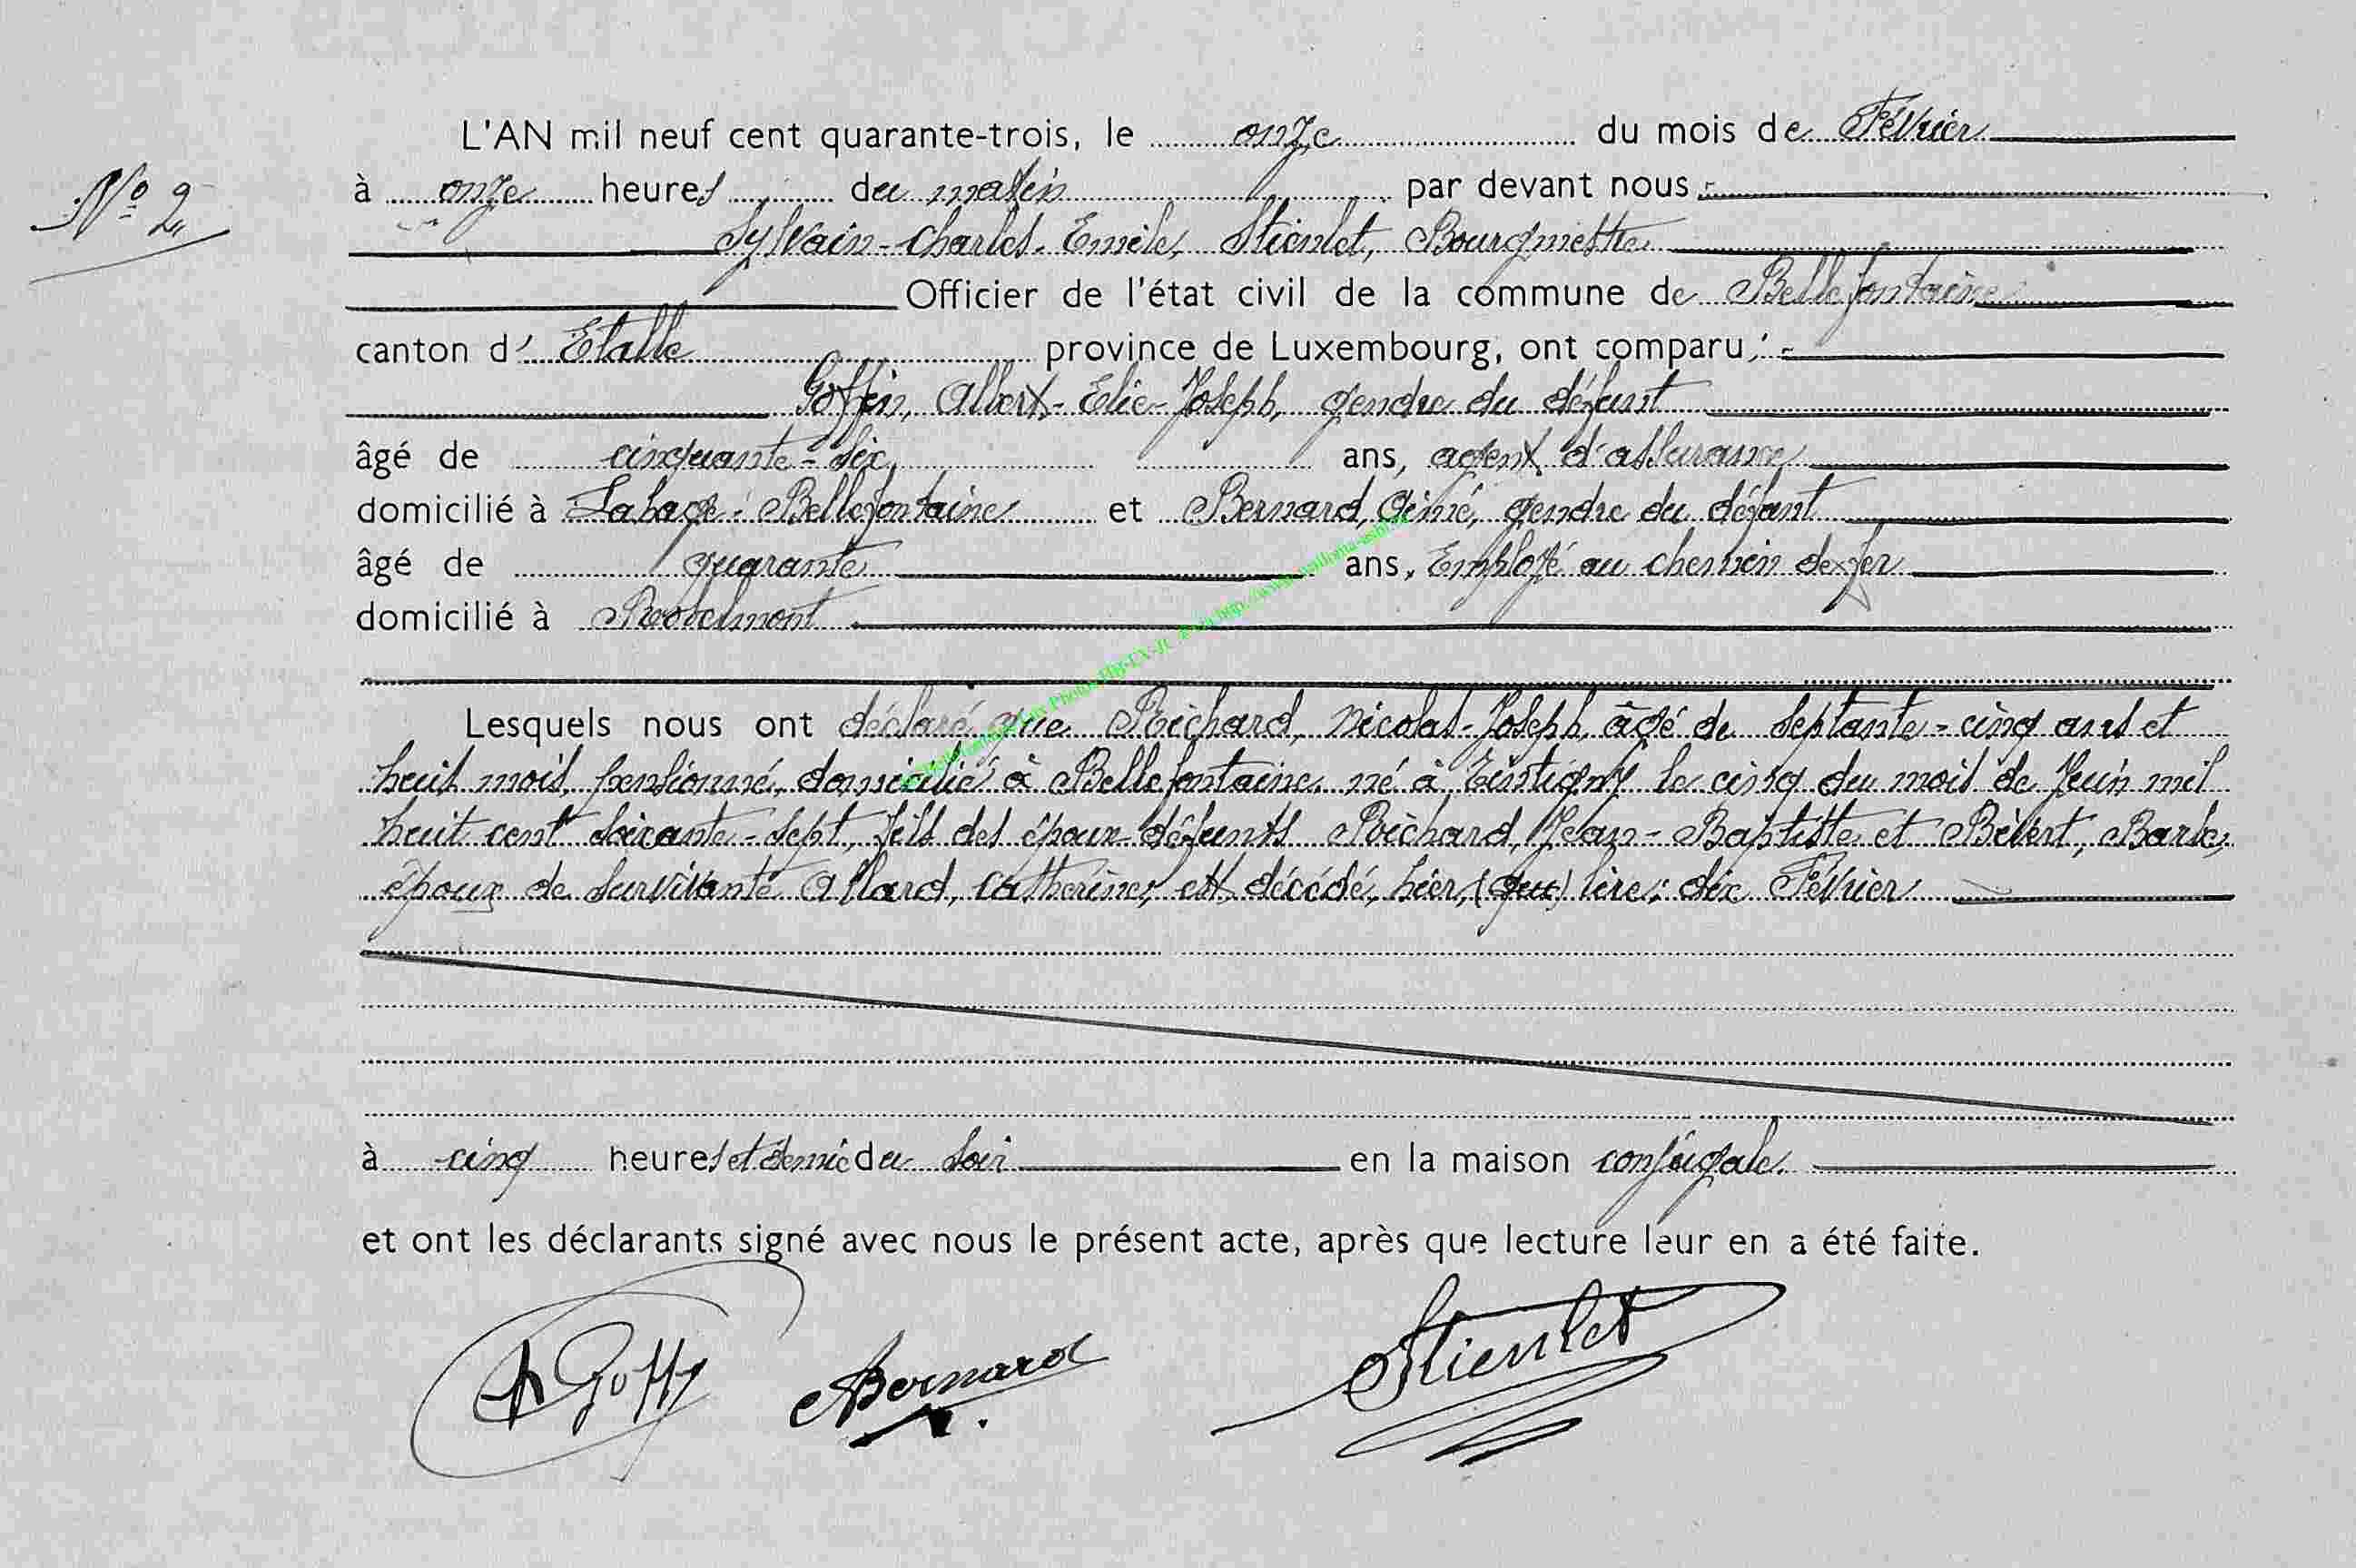 L'AN mil neuf cent quarante-trois, le onze du mois de Février
N° 2 à onze heures du matin par devant nous :
Sylvain-Charles-Emile, Stienlet, Bourgmestre
Officier de l'état civil de la commune de Bellefontaine
canton d' Etalle province de Luxembourg, ont comparu :
Goffin, Albert-Elie-Joseph, gendre du défunt
âgé de cinquante-six ans, agent d'assurance
domicilié à Lahage-Bellefontaine et Bernard, gendre du défunt
âgé de quarante ans, Employé au chemin de fer
domicilié à
Lesquels nous ont déclaré que Richard, Nicolas-Joseph, âgé de septante-cinq ans et
huit mois, pensionné, domicilié à Bellefontaine, né à Tintigny le cinq du mois de Juin mil
huit cent soixante-sept, fils des époux défunts Richard, Jean-Baptiste et Barbe,
époux de survivante Allard, Catherine, est décédé, hier, dix Février
à cinq heures et demie du soir en la maison conjugale.
et ont les déclarants signé avec nous le présent acte, après que lecture leur en a été faite.
Bernard Stienlet